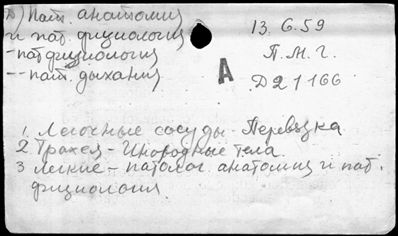 Б) Пат. анатомия
и пат. физиология
- патфизиология
-- пат. дыхания
13.6.59
П.М.Г.
А
Д21166
1. Легочные сосуды - Перевязка
2 Трахея - Инородные тела.
3 Легкие - патолог. анатомия и пат.
физиология.